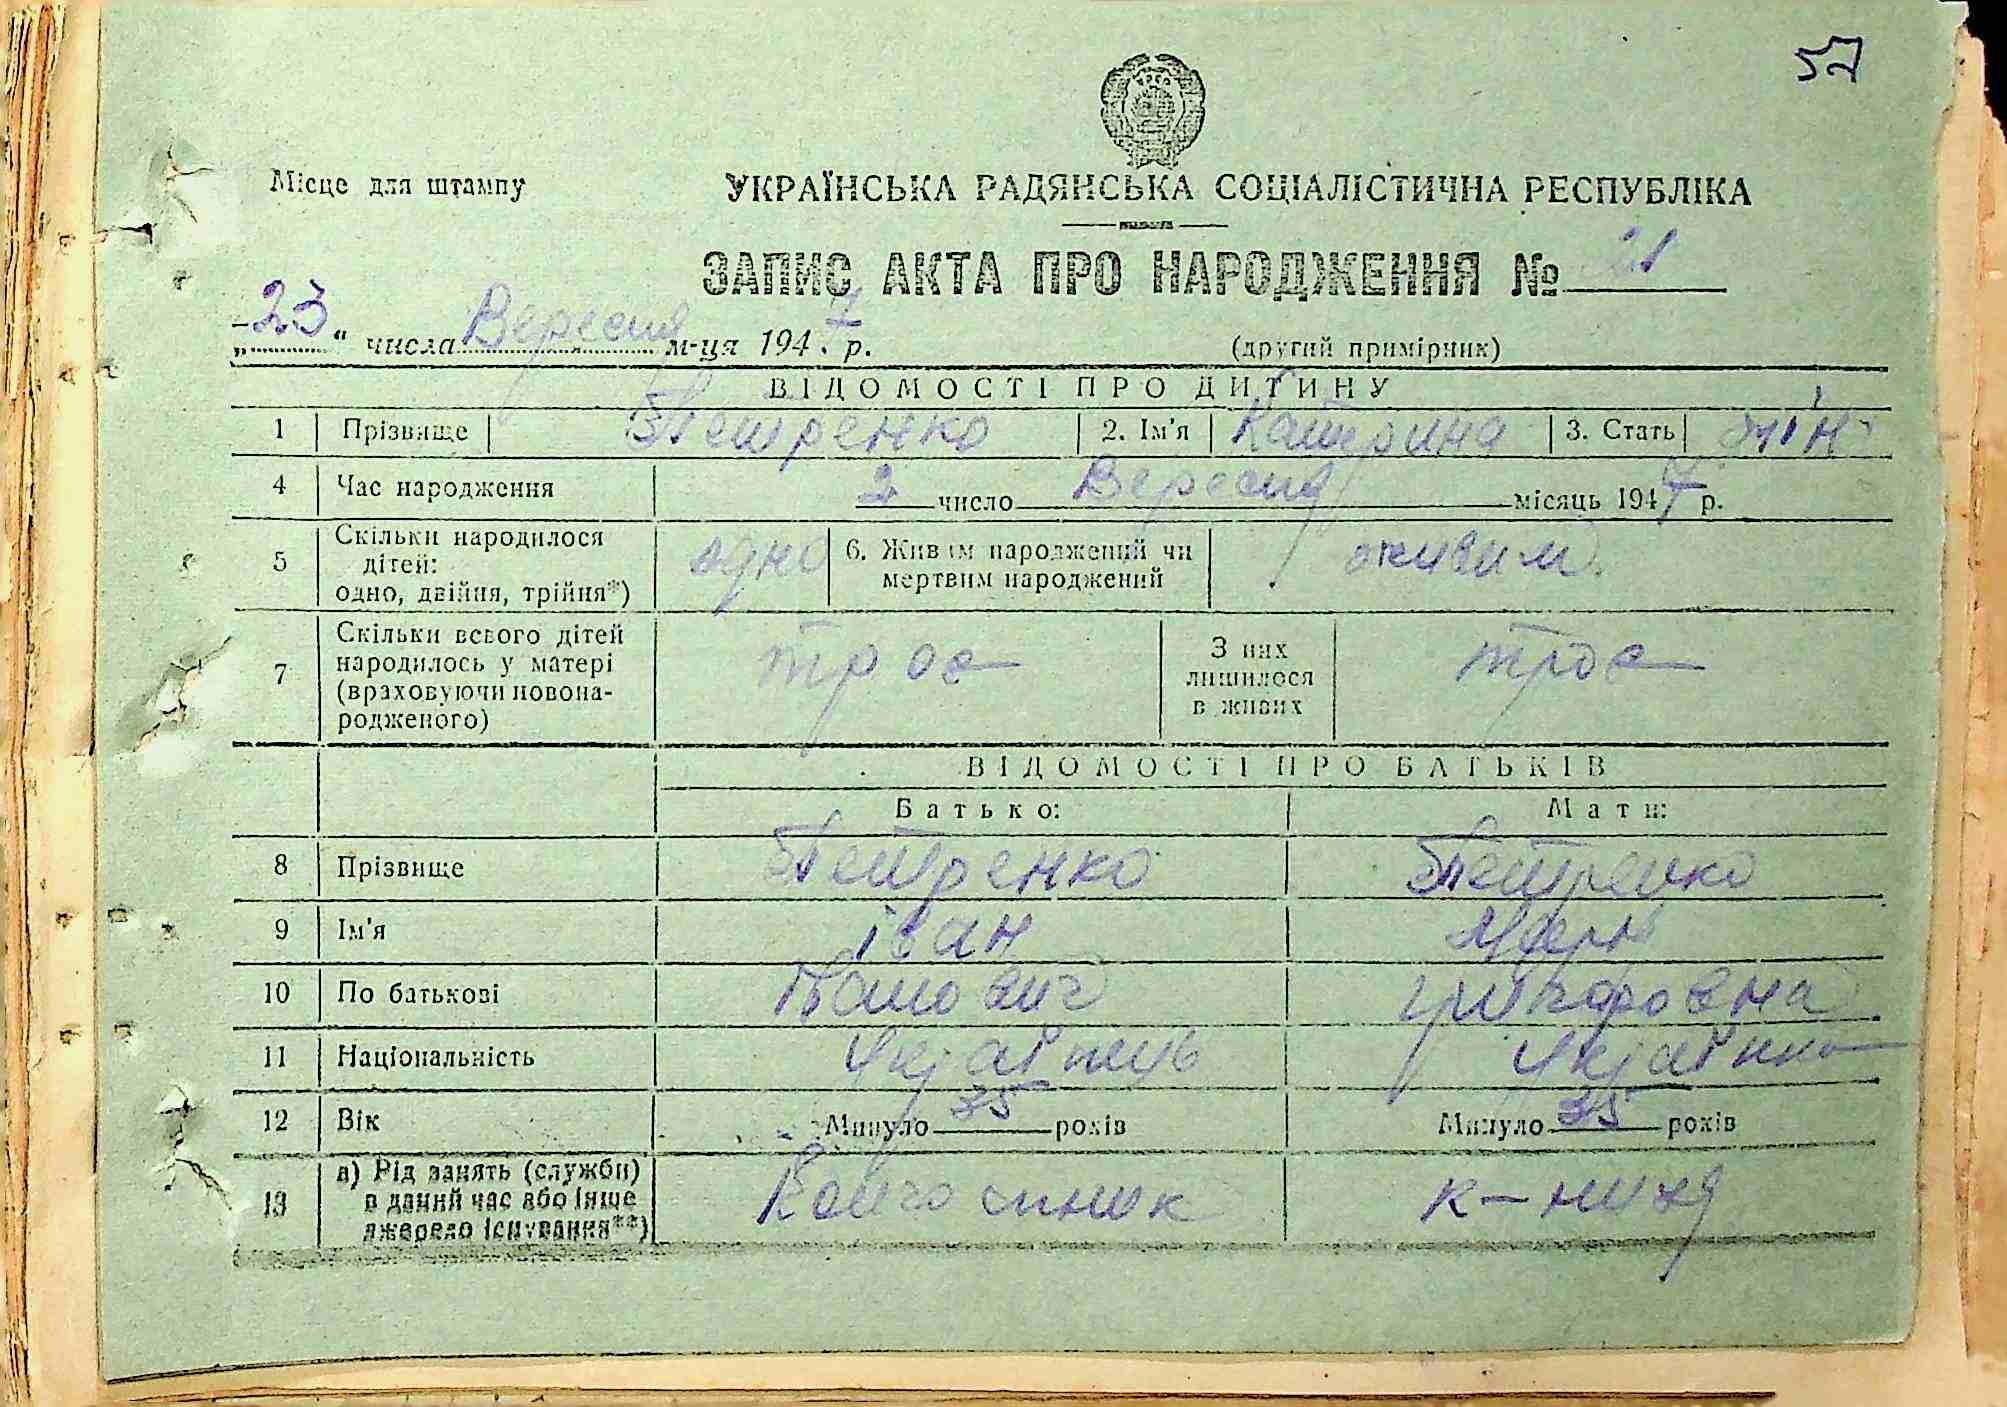 57
Місце для штампу
УКРАЇНСЬКА РАДЯНСЬКА СОЦІАЛІСТИЧНА РЕСПУБЛІКА
ЗАПИС АКТА ПРО НАРОДЖЕННЯ № 21
„23“ числа Вересня м-ця 1947 р. (другий примірник)
ВІДОМОСТІ ПРО ДИТИНУ
1 Прізвище Петренко 2. Ім'я Катерина 3. Стать жін
4 Час народження 2 число Вересня місяць 1947 р.
5 Скільки народилося дітей: одно, двійня, трійня*) одно 6. Живим народжений чи мертвим народжений живим
7 Скільки всього дітей народилось у матері (враховуючи новонародженого) троє З них лишилося в живих троє
ВІДОМОСТІ ПРО БАТЬКІВ
Батько: Мати:
8 Прізвище Петренко Петренко
9 Ім'я Іван
10 По батькові григоровна
11 Національність Українець Українка
12 Вік Минуло 35 років Минуло 35 років
13 а) Рід занять (служби) в даний час або інше джерело існування**)